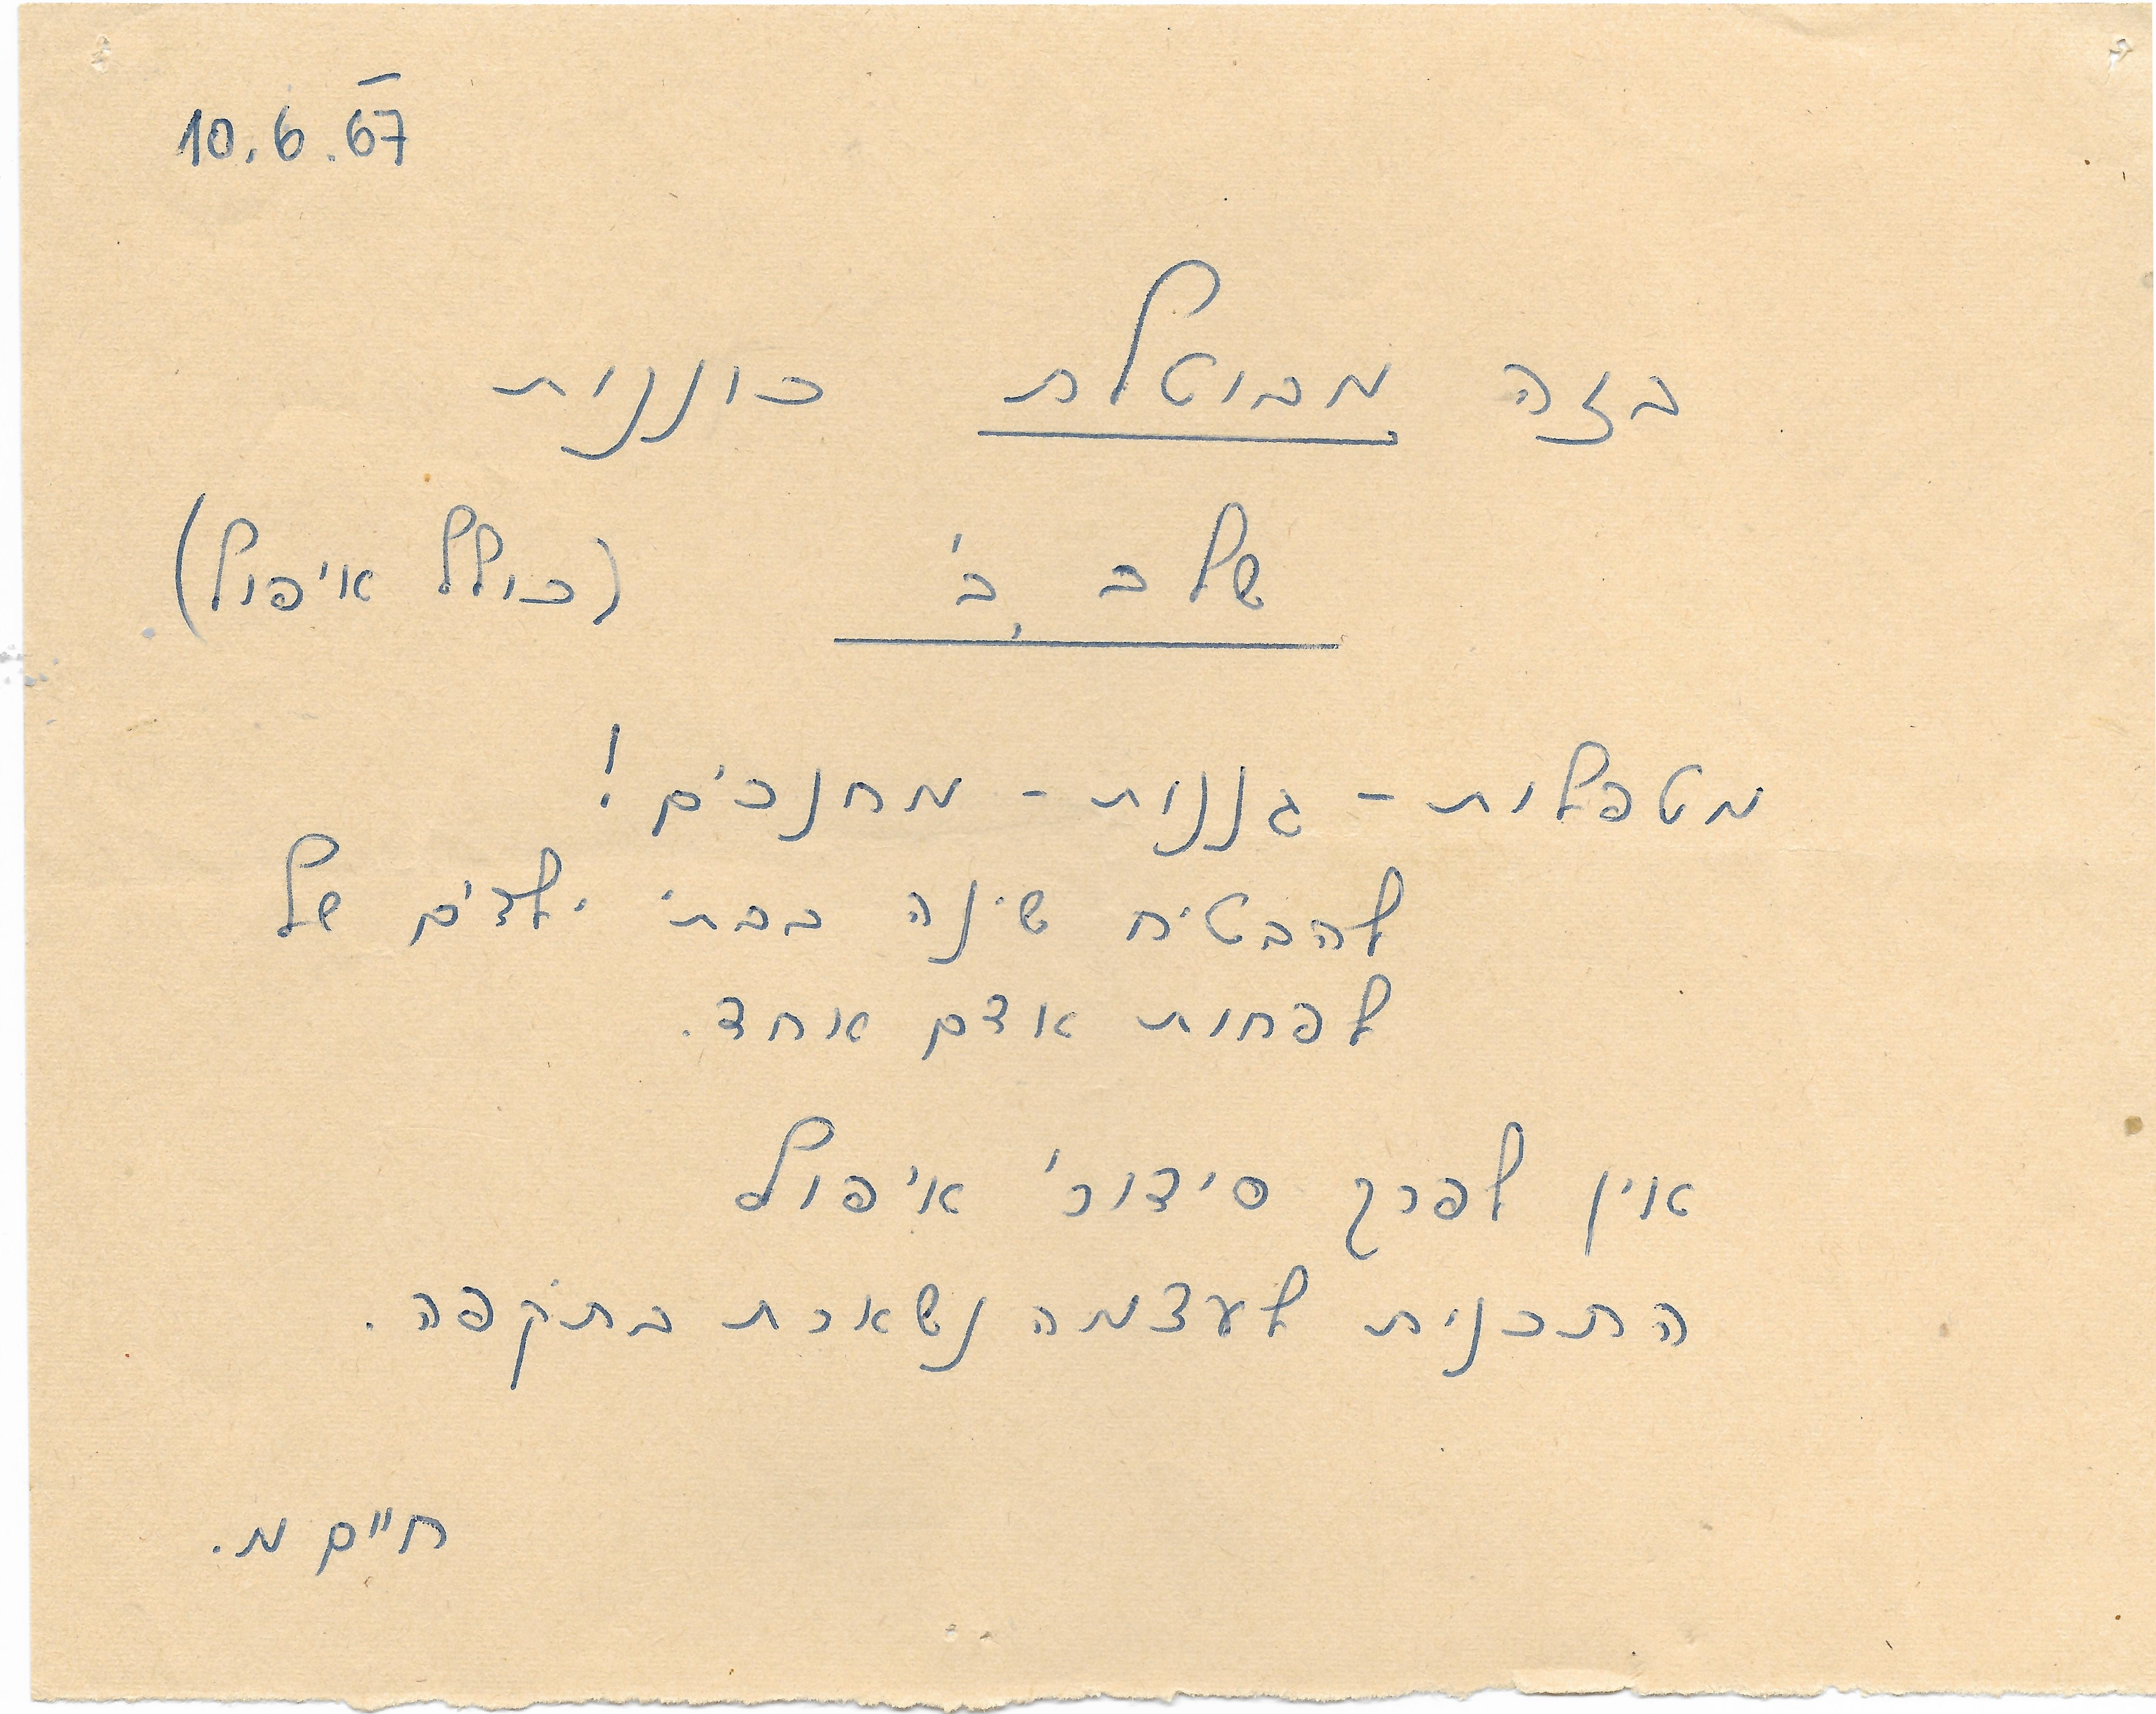 10.6.67
בזה מבוטלת כוננות
שלב ב' (כולל איפול).
מטפלות - גננות - מחנכים!
להבטיח שינה בבתי ילדים של
לפחות אדם אחד.
אין לפרק סידורי איפול
התכנית לעצמה נשארת בתקפה.
חיים מ.